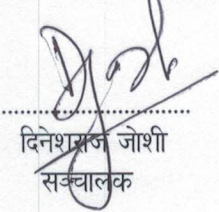 दिनेशराज जोशी
सञ्चालक